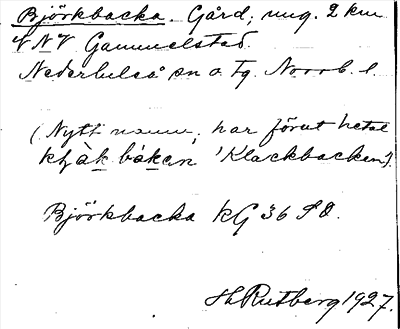 Björkbacka. Gård, ung. 2 km
VNV Gammelstad.
Nederluleå sn o. tg. Norrb. l.
(Nytt namn, har förut hetat
'Klackbacken').
Björkbacka KG 36 SO.
H Rutberg 1927.